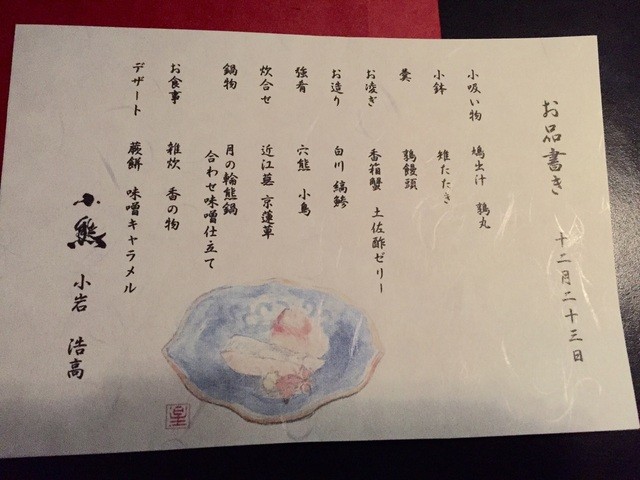 お品書き 十二月二十三日
小吸い物 鳩出汁 鶉丸
小鉢 雉たたき
羹 鶉饅頭
お凌ぎ 香箱蟹 土佐酢ゼリー
お造り 白川 縞鯵
強肴 穴熊 小鳥
炊合せ 近江蕪 京蓮草
鍋物 月の輪熊鍋
合わせ味噌仕立て
お食事 雑炊 香の物
デザート 蕨餅 味噌キャラメル
小熊 小岩 浩高